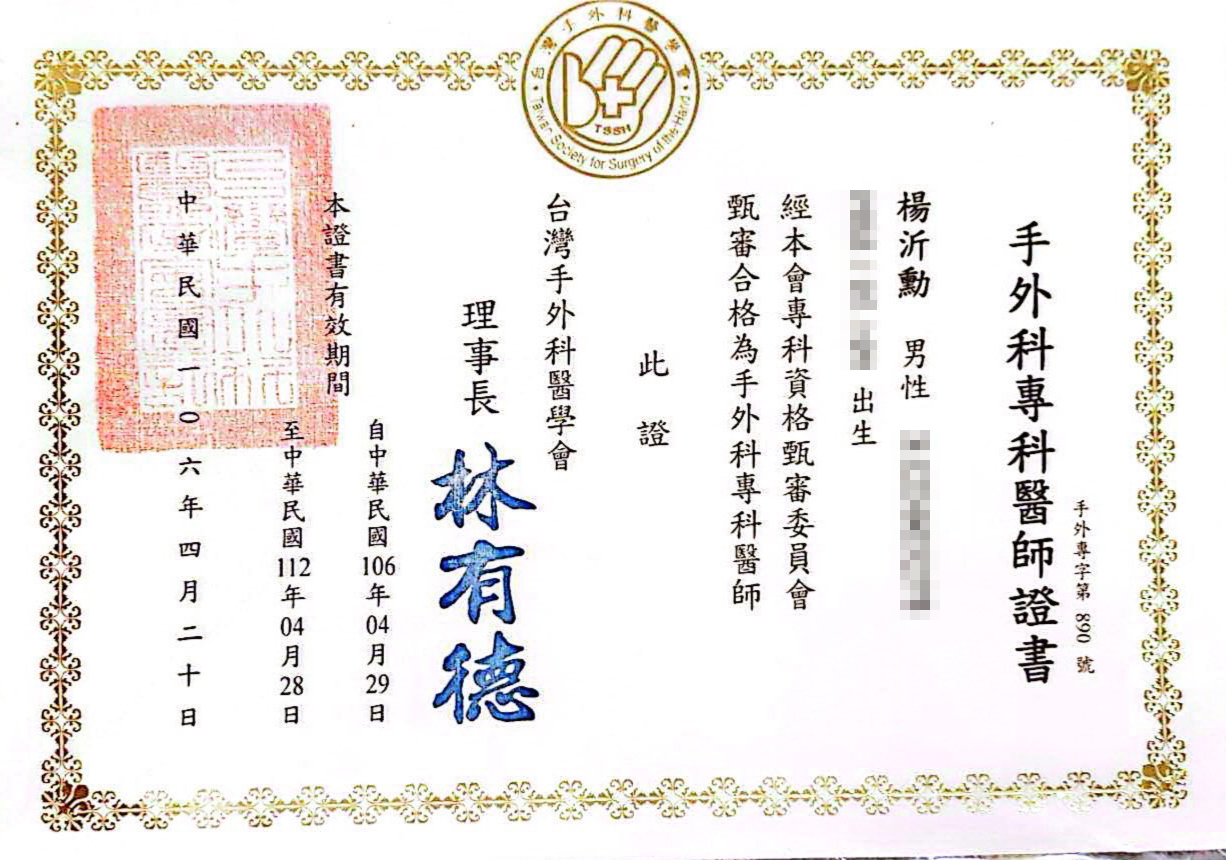 台灣手外科醫學會
Taiwan Society for Surgery of the Hand
TSSH
手外專字第 890 號
手外科專科醫師證書
楊沂勳 男性
出生
經本會專科資格甄審委員會
甄審合格為手外科專科醫師
此證
台灣手外科醫學會
理事長 林有德
本證書有效期間
自中華民國106年04月29日
至中華民國112年04月28日
中華民國一0六年四月二十日